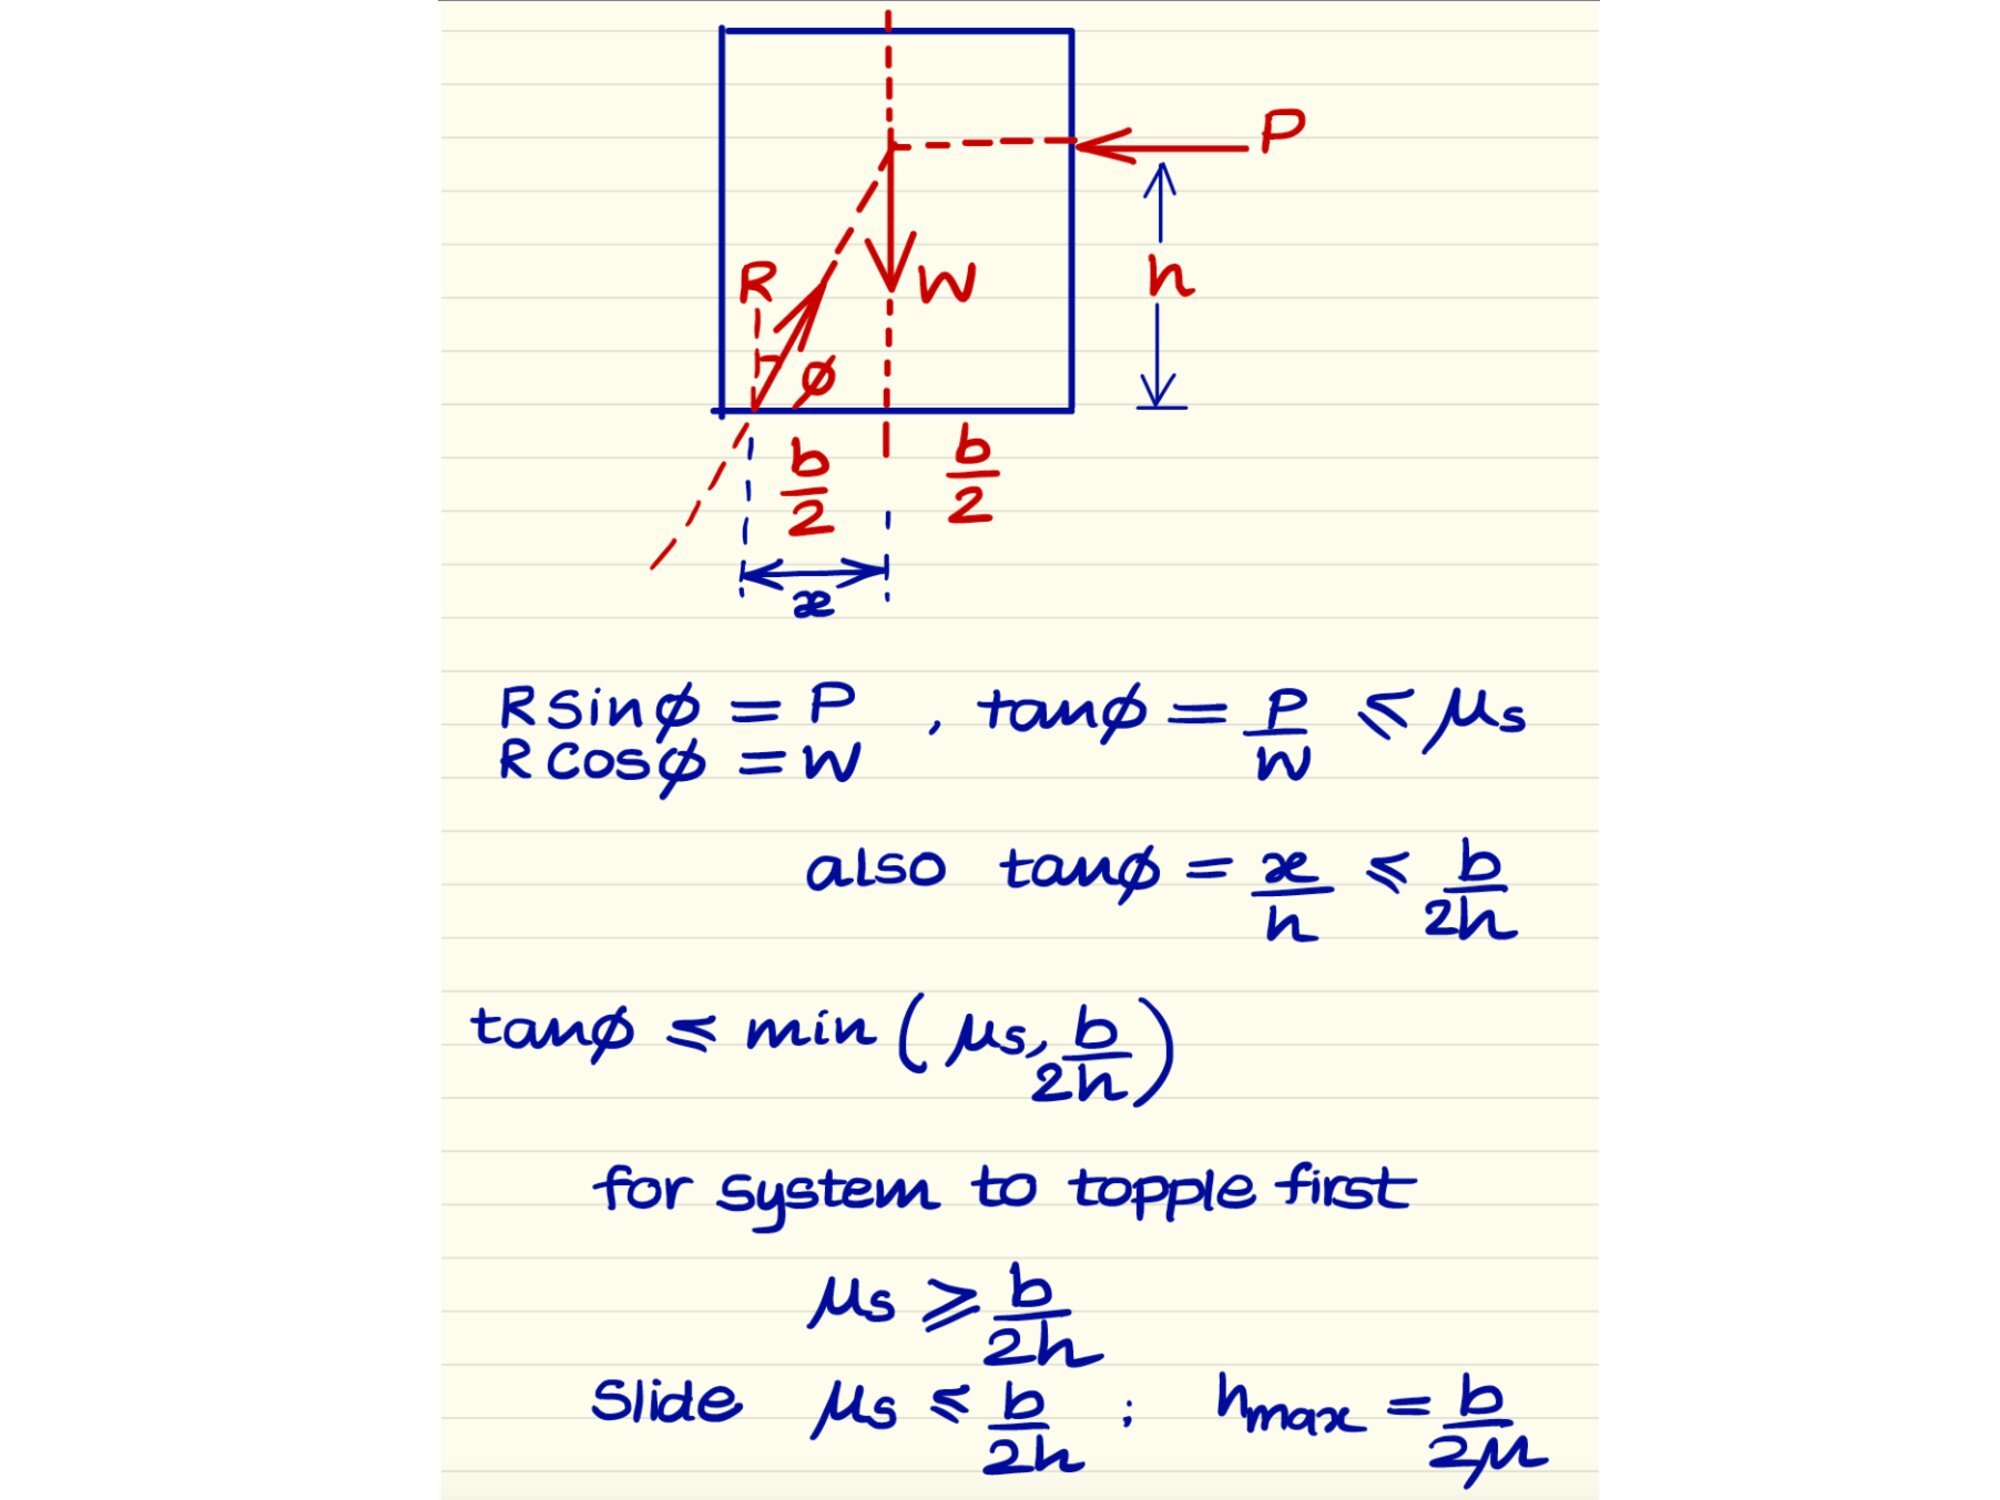 P
h
R
W
ϕ
b/2 b/2
x
R sinϕ = P , tanϕ = P/W ⩽ μs
R cosϕ = W
also tanϕ = x/h ⩽ b/2h
tanϕ ⩽ min(μs, b/2h)
for system to topple first
μs ⩾ b/2h
Slide μs ⩽ b/2h ; hmax = b/2μ